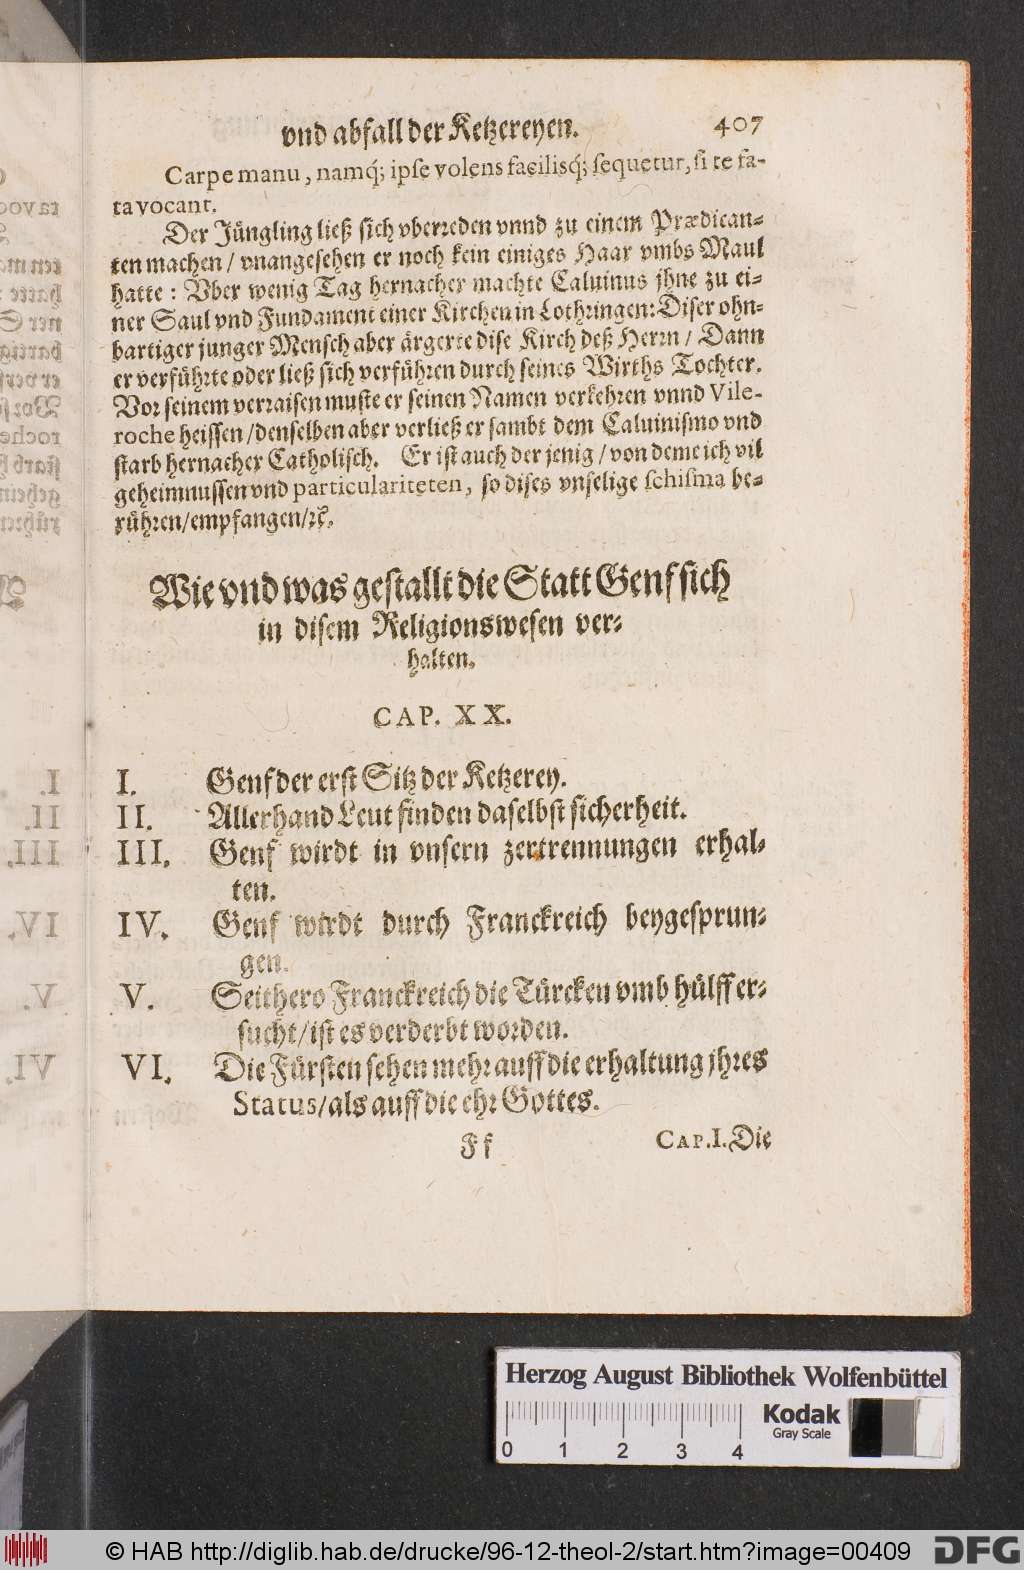 vnd abfall der Ketzereyen. 407
Carpe manu, namq́; ipse volens facilisq́; sequetur, si te fa-
ta vocant.
Der Jüngling ließ sich vberreden vnnd zu einem Prædican-
ten machen / vnangesehen er noch kein einiges Haar vmbs Maul
hatte: Vber wenig Tag hernacher machte Caluinus jhne zu ei-
ner Saul vnd Fundament einer Kirchen in Lothringen: Diser ohn-
bartiger junger Mensch aber ärgerte dise Kirch deß Herrn / Dann
er verführte oder ließ sich verführen durch seines Wirths Tochter.
Vor seinem verraisen muste er seinen Namen verkehren vnnd Vile-
roche heissen / denselben aber verließ er sambt dem Caluinismo vnd
starb hernacher Catholisch. Er ist auch der jenig / von deme ich vil
geheimnussen vnd particulariteten, so dises vnselige schisma be-
rühren / empfangen / ꝛc.
Wie vnd was gestallt die Statt Genf sich
in disem Religionswesen ver-
halten.
CAP. XX.
I. Genf der erst Sitz der Ketzerey.
II. Allerhand Leut finden daselbst sicherheit.
III. Genf wirdt in vnsern zertrennungen erhal-
ten.
IV. Genf wirdt durch Franckreich beygesprun-
gen.
V. Seithero Franckreich die Türcken vmb hülff er-
sucht / ist es verderbt worden.
VI. Die Fürsten sehen mehr auff die erhaltung jhres
Status / als auff die ehr Gottes.
Ff CAP. I. Die
Herzog August Bibliothek Wolfenbüttel
0 1 2 3 4
Kodak
Gray Scale
© HAB http://diglib.hab.de/drucke/96-12-theol-2/start.htm?image=00409
DFG